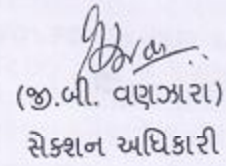 (જી.બી. વણઝારા)
સેક્શન અધિકારી